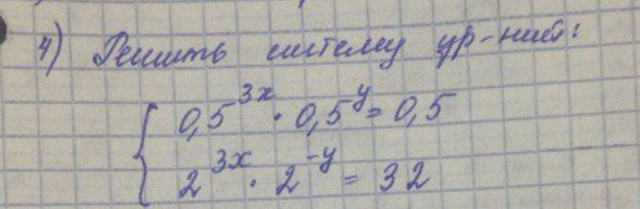 4) Решить систему ур-ний:
0,5^{3x} · 0,5^{y} = 0,5
2^{3x} · 2^{-y} = 32